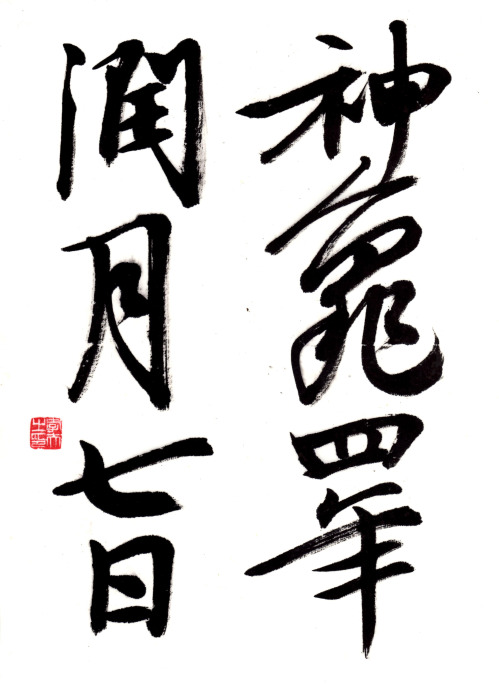 神亀四年
閏月七日